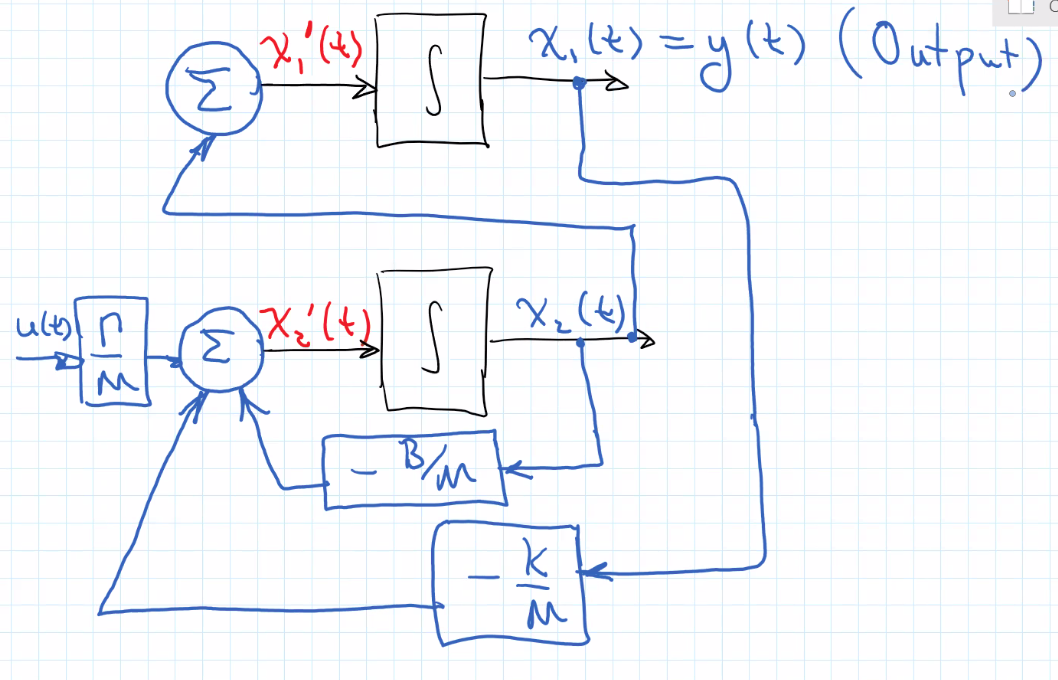 Σ x₁'(t) ∫ x₁(t) = y(t) (Output)
u(t) Γ/M Σ x₂'(t) ∫ x₂(t)
- B/M
- K/M